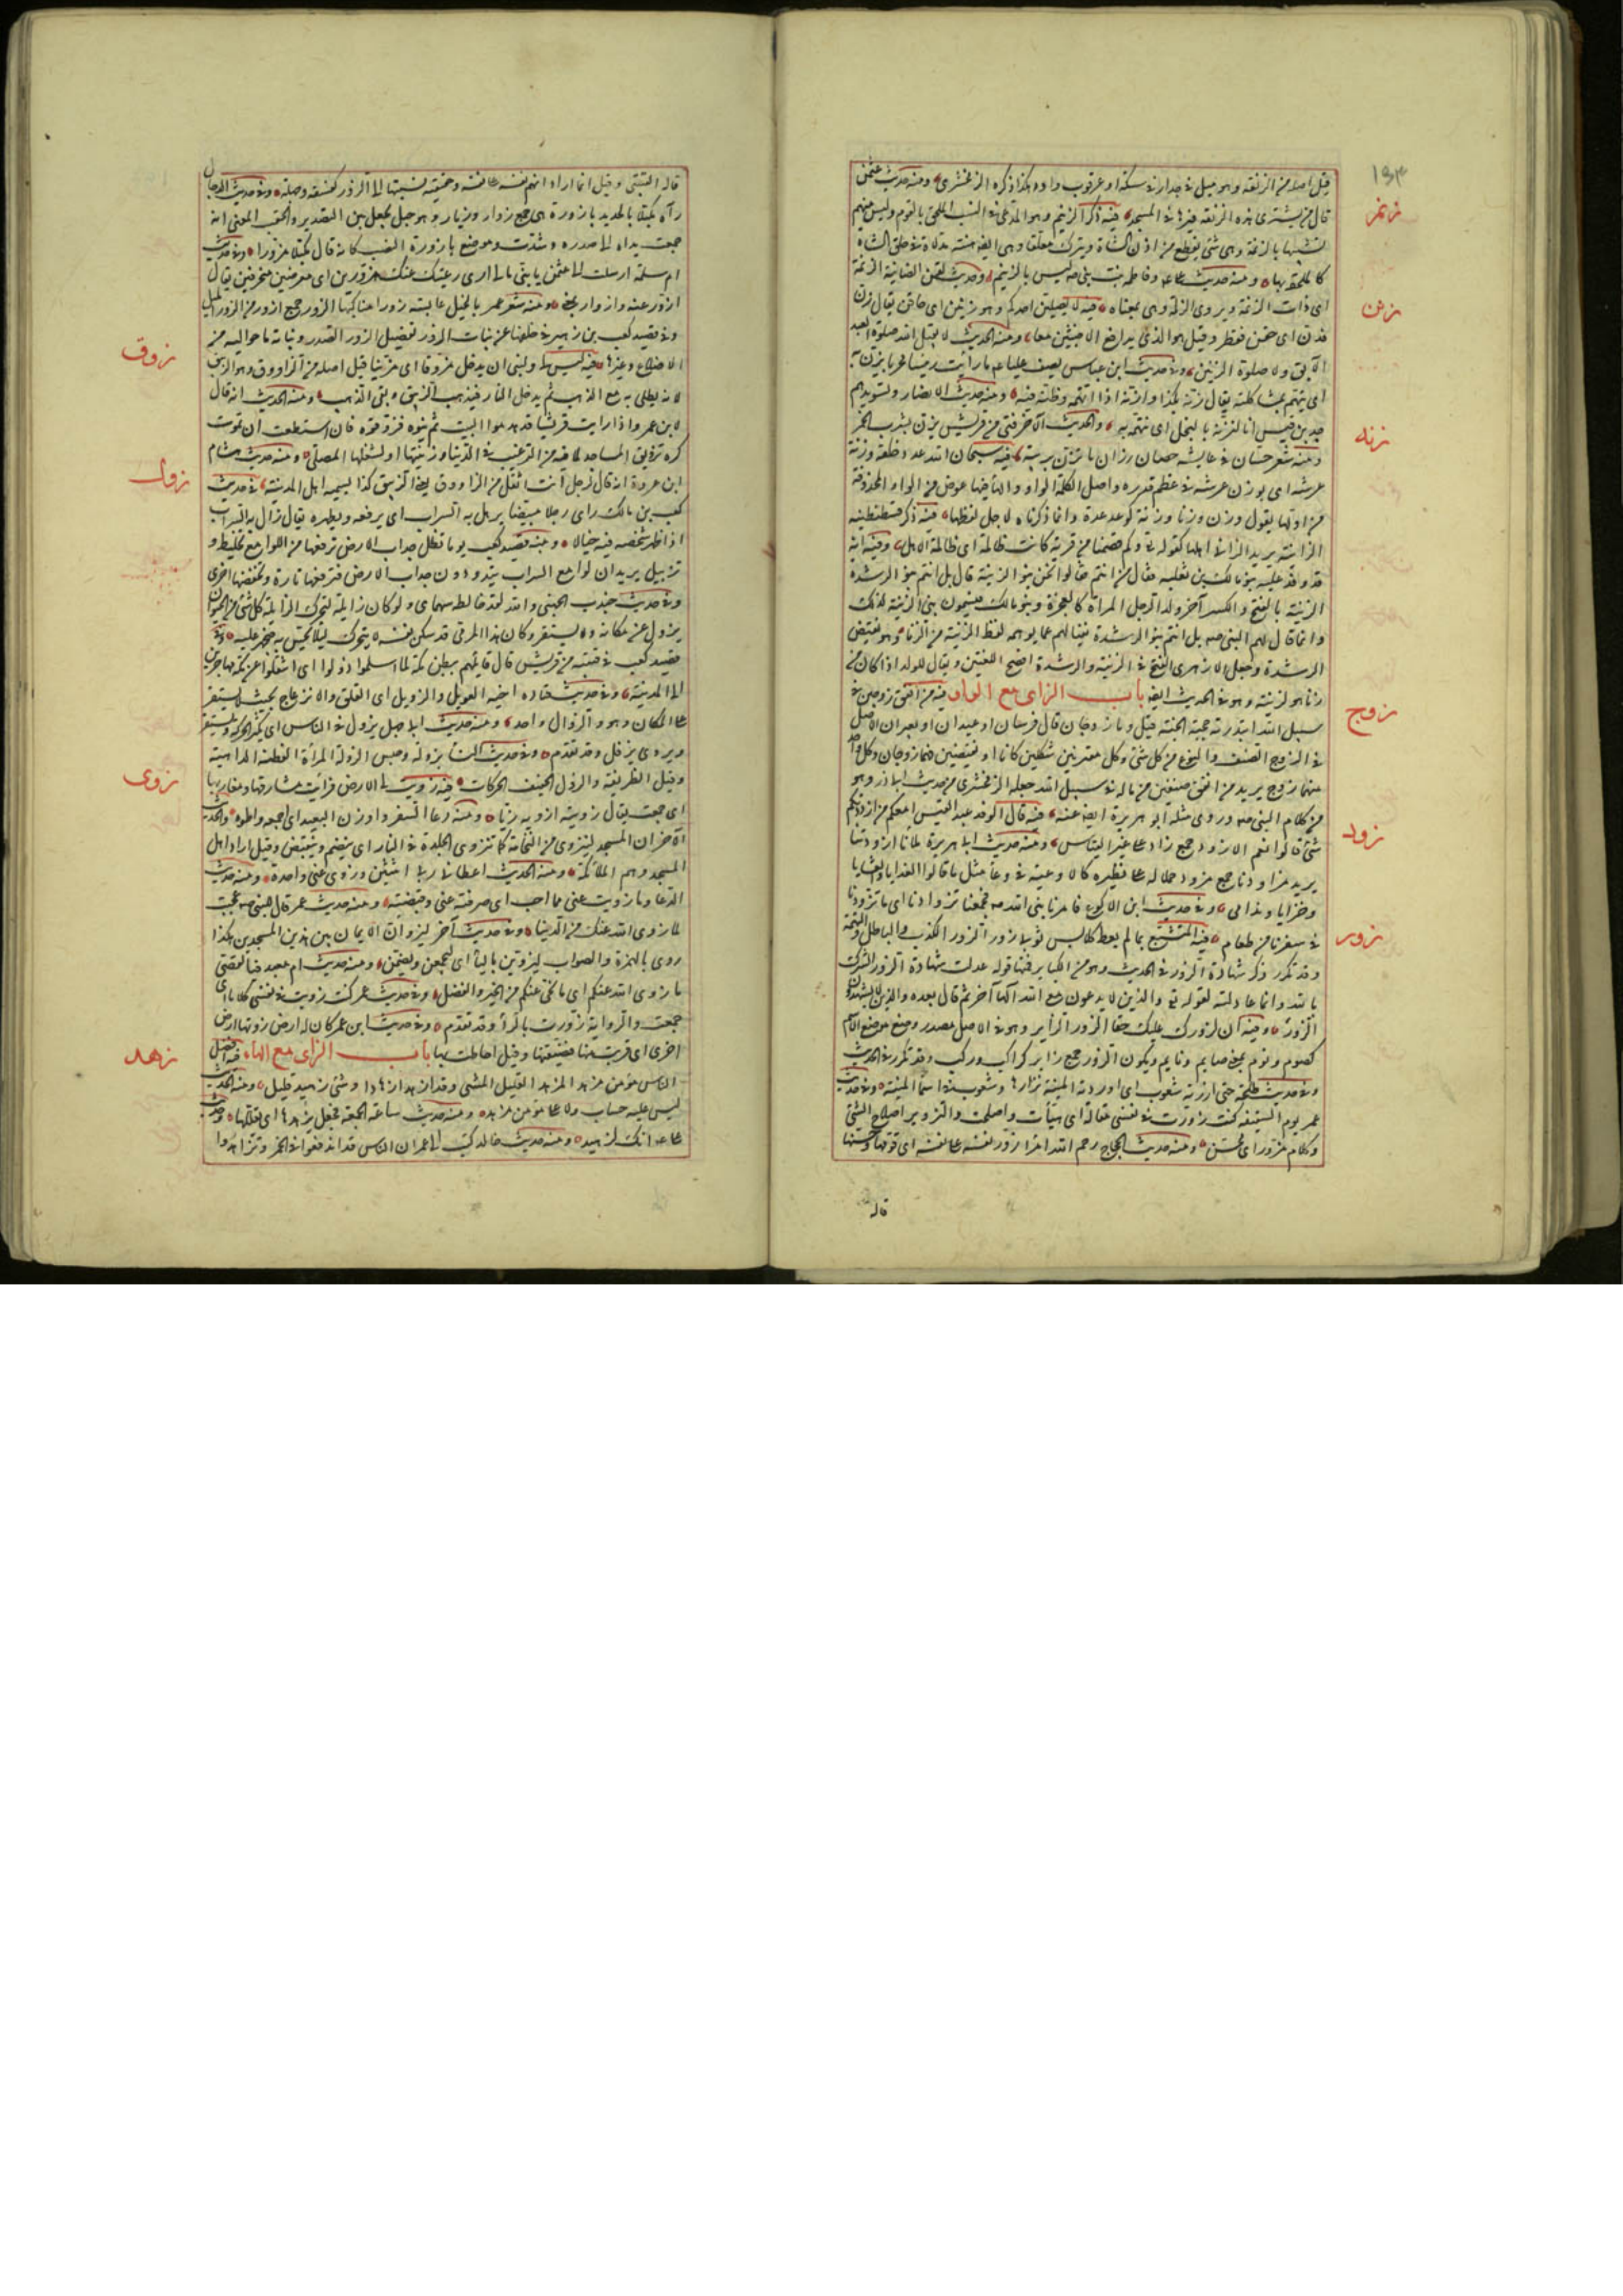 ١٩٣
قيل اصله من الزلفة وهو ميل في جدار في سكة او عرقوب واد وهكذا ذكره الزمخشري ومنه حديث عثمن
زنم
قال من يشتري هذه الزنقة فيزيدها في المسجد فيه ذكر الزنيم وهو الدعي في النسب الملحق بالقوم وليس منهم
تشبيها بالزنمة وهي شئ يقطع من اذن الشاة ويترك معلقا وهي ايضا هنة مدلاة في حلق الشاة
كالملحقة بها ومنه حديث علي وفاطمة بنت نبي ليس بالزنيم وحديث لقمن الضائنة الزنمة
زنن
اي ذات الزنمة ويروى الزلمة وهي بمعناه فيه لا يصلين احدكم وهو زنين اي حاقن يقال زن
فذن اي حقن فقطر وقيل هو الذي يدافع الاخبثين معا ومنه الحديث لا يقبل الله صلوة العبد
الآبق ولا صلوة الزنين وفي حديث ابن عباس يصف عليا ما رأيت رئيسا محربا يزن به
اي يتهم بمشاكلته يقال زنه بكذا وازنه اذا اتهمه وظنه فيه ومنه حديث الانصار وتسويدهم
زنه
جد بن قيس انا لنزنه بالبخل اي نتهمه به والحديث الآخر فتى من قريش يزن بشرب الخمر
ومنه شعر حسان في عايشة حصان رزان ما تزن بريبة فيه سبحان الله عدد خلقه وزنة
عرشه اي بوزن عرشه في عظم قدره واصل الكلمة الواو والهاء فيها عوض من الواو المحذوفة
من اولها يقول وزن يزن وزنا وزنة كوعد عدة وانما ذكرناه لاجل لفظها فيه ذكر قسطنطينية
الزانية يريد الزاني اهلها كقوله تع وكم قصمنا من قرية كانت ظالمة اي ظالمة الاهل وفيه انه
وفد عليه بنو مالك بن ثعلبة فقال من انتم فقالوا نحن بنو الزنية قال بل انتم بنو الرشدة
الزنية بالفتح والكسر آخر ولد الرجل المرأة كالعجزة وبنو مالك يسمون بني الزنية لذلك
وانما قال لهم النبي صلعم بل انتم بنو الرشدة نفيا لهم عما يوهمه لفظ الزنية من الزنا وهو نقيض
الرشدة وجعل الازهري الفتح في الزنية والرشدة افصح اللغتين ويقال للولد اذا كان من
زنا هو لزنية وهو في الحديث ايضا باب الزاي مع الواو فيه من انفق زوجين في
زوج
سبيل الله ابتدرته حجبة الجنة قيل وما زوجان قال فرسان او عبدان او بعيران الاصل
في الزوج الصنف والنوع من كل شئ وكل مقترنين شكلين كانا او نقيضين فهما زوجان وكل واحد
منهما زوج يريد من انفق صنفين من ماله في سبيل الله جعله الزمخشري من حديث ابي ذر وهو
من كلام النبي صه وروى مثله ابو هريرة ايضا عنه فيه قال لوفد عبد القيس امعكم من ازودتكم
زود
شئ قالوا نعم الازودة جمع زاد على غير القياس ومنه حديث ابي هريرة ملأنا ازودتنا
يريد مزاودنا جمع مزود حملا له على نظيره كالاوعية في وعاء مثل ما قالوا الغدايا والعشايا
وخزايا وندامى وفي حديث ابن الاكوع فامرنا نبي الله صه فجمعنا تزوادنا اي ما تزودنا
زور
في سفرنا من طعام فيه المتشبع بما لم يعط كلابس ثوبي زور الزور الكذب والباطل والتهمة
وقد تكرر ذكر شهادة الزور في الحديث وهو من الكباير فمنها قوله عدلت شهادة الزور الشرك
بالله وانما عادلته لقوله تع والذين لا يدعون مع الله الها آخر ثم قال بعده والذين لا يشهدون
الزور وفيه ان لزورك عليك حقا الزور الزاير وهو في الاصل مصدر وضع موضع الاسم
كصوم ونوم بمعنى صايم ونايم ويكون الزور جمع زاير كراكب وركب وقد تكرر في الحديث
وفي حديث طلحة حتى ازرته شعوب اي اوردته المنية فزارها وشعوب من اسماء المنية وفي حديث
عمر يوم السقيفة كنت زورت في نفسي مقالة اي هيأت واصلحت والتزوير اصلاح الشئ
وكلام مزور اي محسن ومنه حديث الحجاج رحم الله امرأ زور نفسه على نفسه اي قومها وحسنها
قاله
قاله القتيبي وقيل انما اراد اتهم نفسه على نفسه وحقيقته نسبتها الى الزور كفسقه وجهله وفي حديث الدجال
رآه مكبلا بالحديد بازورة هي جمع زوار وزيار وهو حبل يجعل بين التصدير والحقب المعنى انه
جمعت يداه الى صدره وشدت وموضع بازورة النصب كانه قال مكبلا مزورا وفي حديث
ام سلمة ارسلت الى عثمن يا بني مالي ارى رعيتك عنك مزورين اي معرضين منحرفين يقال
ازور عنه وازوار بمعنى ومنه شعر عمر بالخيل عابسة زورا مناكبها الزور جمع ازور من الزور الميل
وفي قصيد كعب بن زهير في خلقها عن بنات الزور تفضيل الزور الصدر وبناته ما حواليه من
زوق
الاضلاع وغيرها فيه ليس لي ولنبي ان يدخل مزوقا اي مزينا قيل اصله من الزاووق وهو الزيبق
لانه يطلى به مع الذهب ثم يدخل النار فيذهب الزيبق وبقى الذهب ومنه الحديث انه قال
لابن عمر واذا رايت قريشا قد هدموا البيت ثم بنوه فزوقوه فان استطعت ان تموت
كره تزويق المساجد لما فيه من الترغيب في الدنيا وزينتها او لشغلها المصلى ومنه حديث هشام
زول
ابن عروة انه قال لرجل انت اثقل من الزاووق يعني الزيبق كذا يسميه اهل المدينة في حديث
كعب بن مالك راى رجلا مبيضا يزول به السراب اي يرفعه ويظهره يقال زال به السراب
اذا ظهر شخصه فيه خيالا ومنه قصيد كعب يوما تظل حداب الارض ترفعها من اللوامع تخليط و
تزييل يريد ان لوامع السراب تبدو دون حداب الارض فترفعها تارة وتخفضها اخرى
وفي حديث جندب الجهني والله لقد خالطه سهماي ولو كان زايلة لتحرك الزايلة كل شئ من الحيوان
يزول عن مكانه ولا يستقر وكان هذا المرمى قد سكن نفسه لا يتحرك ليلا يحس به فيجهز عليه وفي
قصيد كعب في فتية من قريش قال قائلهم ببطن مكة لما اسلموا زولوا اي انتقلوا عن مكة مهاجرين
الى المدينة وفي حديث قتادة اخذه العويل والزويل اي القلق والانزعاج بحيث لا يستقر
على المكان وهو والزوال واحد ومنه حديث ابي جهل يزول في الناس اي يكثر الحركة ولا يستقر
ويروى يرفل وقد تقدم وفي حديث النساء بزولة وجلس الزولة المرأة الفطنة الداهية
زوى
وقيل الظريفة والزول الخفيف الحركات فيه زويت لي الارض فرأيت مشارقها ومغاربها
اي جمعت يقال زويته ازويه زيا ومنه دعاء السفر وازو لنا البعيد اي اجمعه واطوه والحديث
الآخر ان المسجد لينزوي من النخامة كما تنزوي الجلدة في النار اي ينضم وينقبض وقيل اراد اهل
المسجد وهم الملائكة ومنه الحديث اعطاني ربي اثنتين وزوى عني واحدة ومنه حديث
الدعاء وما زويت عني مما احب اي صرفته عني وقبضته ومنه حديث عمر قال للنبي صه عجبت
لما زوى الله عنك من الدنيا وفي حديث آخر ليزوأن الايمان بين هذين المسجدين هكذا
روى بالهمزة والصواب ليزوين بالياء اي ليجمعن ويضمن ومنه حديث ام معبد فيال قصي
ما زوى الله عنكم اي ما نحى عنكم من الخير والفضل وفي حديث عمر كنت زويت في نفسي كلاما اي
جمعت والرواية زورت بالراء وقد تقدم وفي حديث ابن عمر كان له ارض زوتها ارض
زهد
اخرى اي قربت منها فضيقتها وقيل احاطت بها باب الزاي مع الهاء فيه افضل
الناس مؤمن مزهد المزهد القليل الشئ وقد ازهد ازهادا وشئ زهيد قليل ومنه الحديث
ليس عليه حساب ولا على مؤمن مزهد ومنه حديث ساعة الجمعة فجعل يزهدها اي يقللها وحديث
على انك لزهيد ومنه حديث خالد كتب الى عمر ان الناس قد اندفعوا في الخمر وتزاهدوا